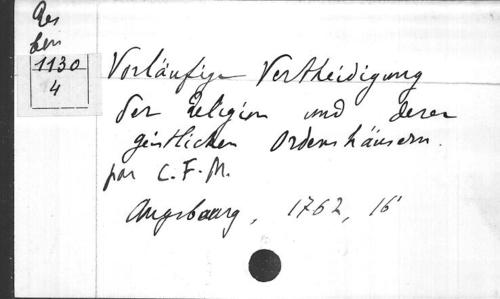 Res
ben
1130
4
Vorläufige Vertheidigung
der Religion und derer
geistlichen Ordenshäusern.
par C. F. M.
Augsbourg, 1762, 16°